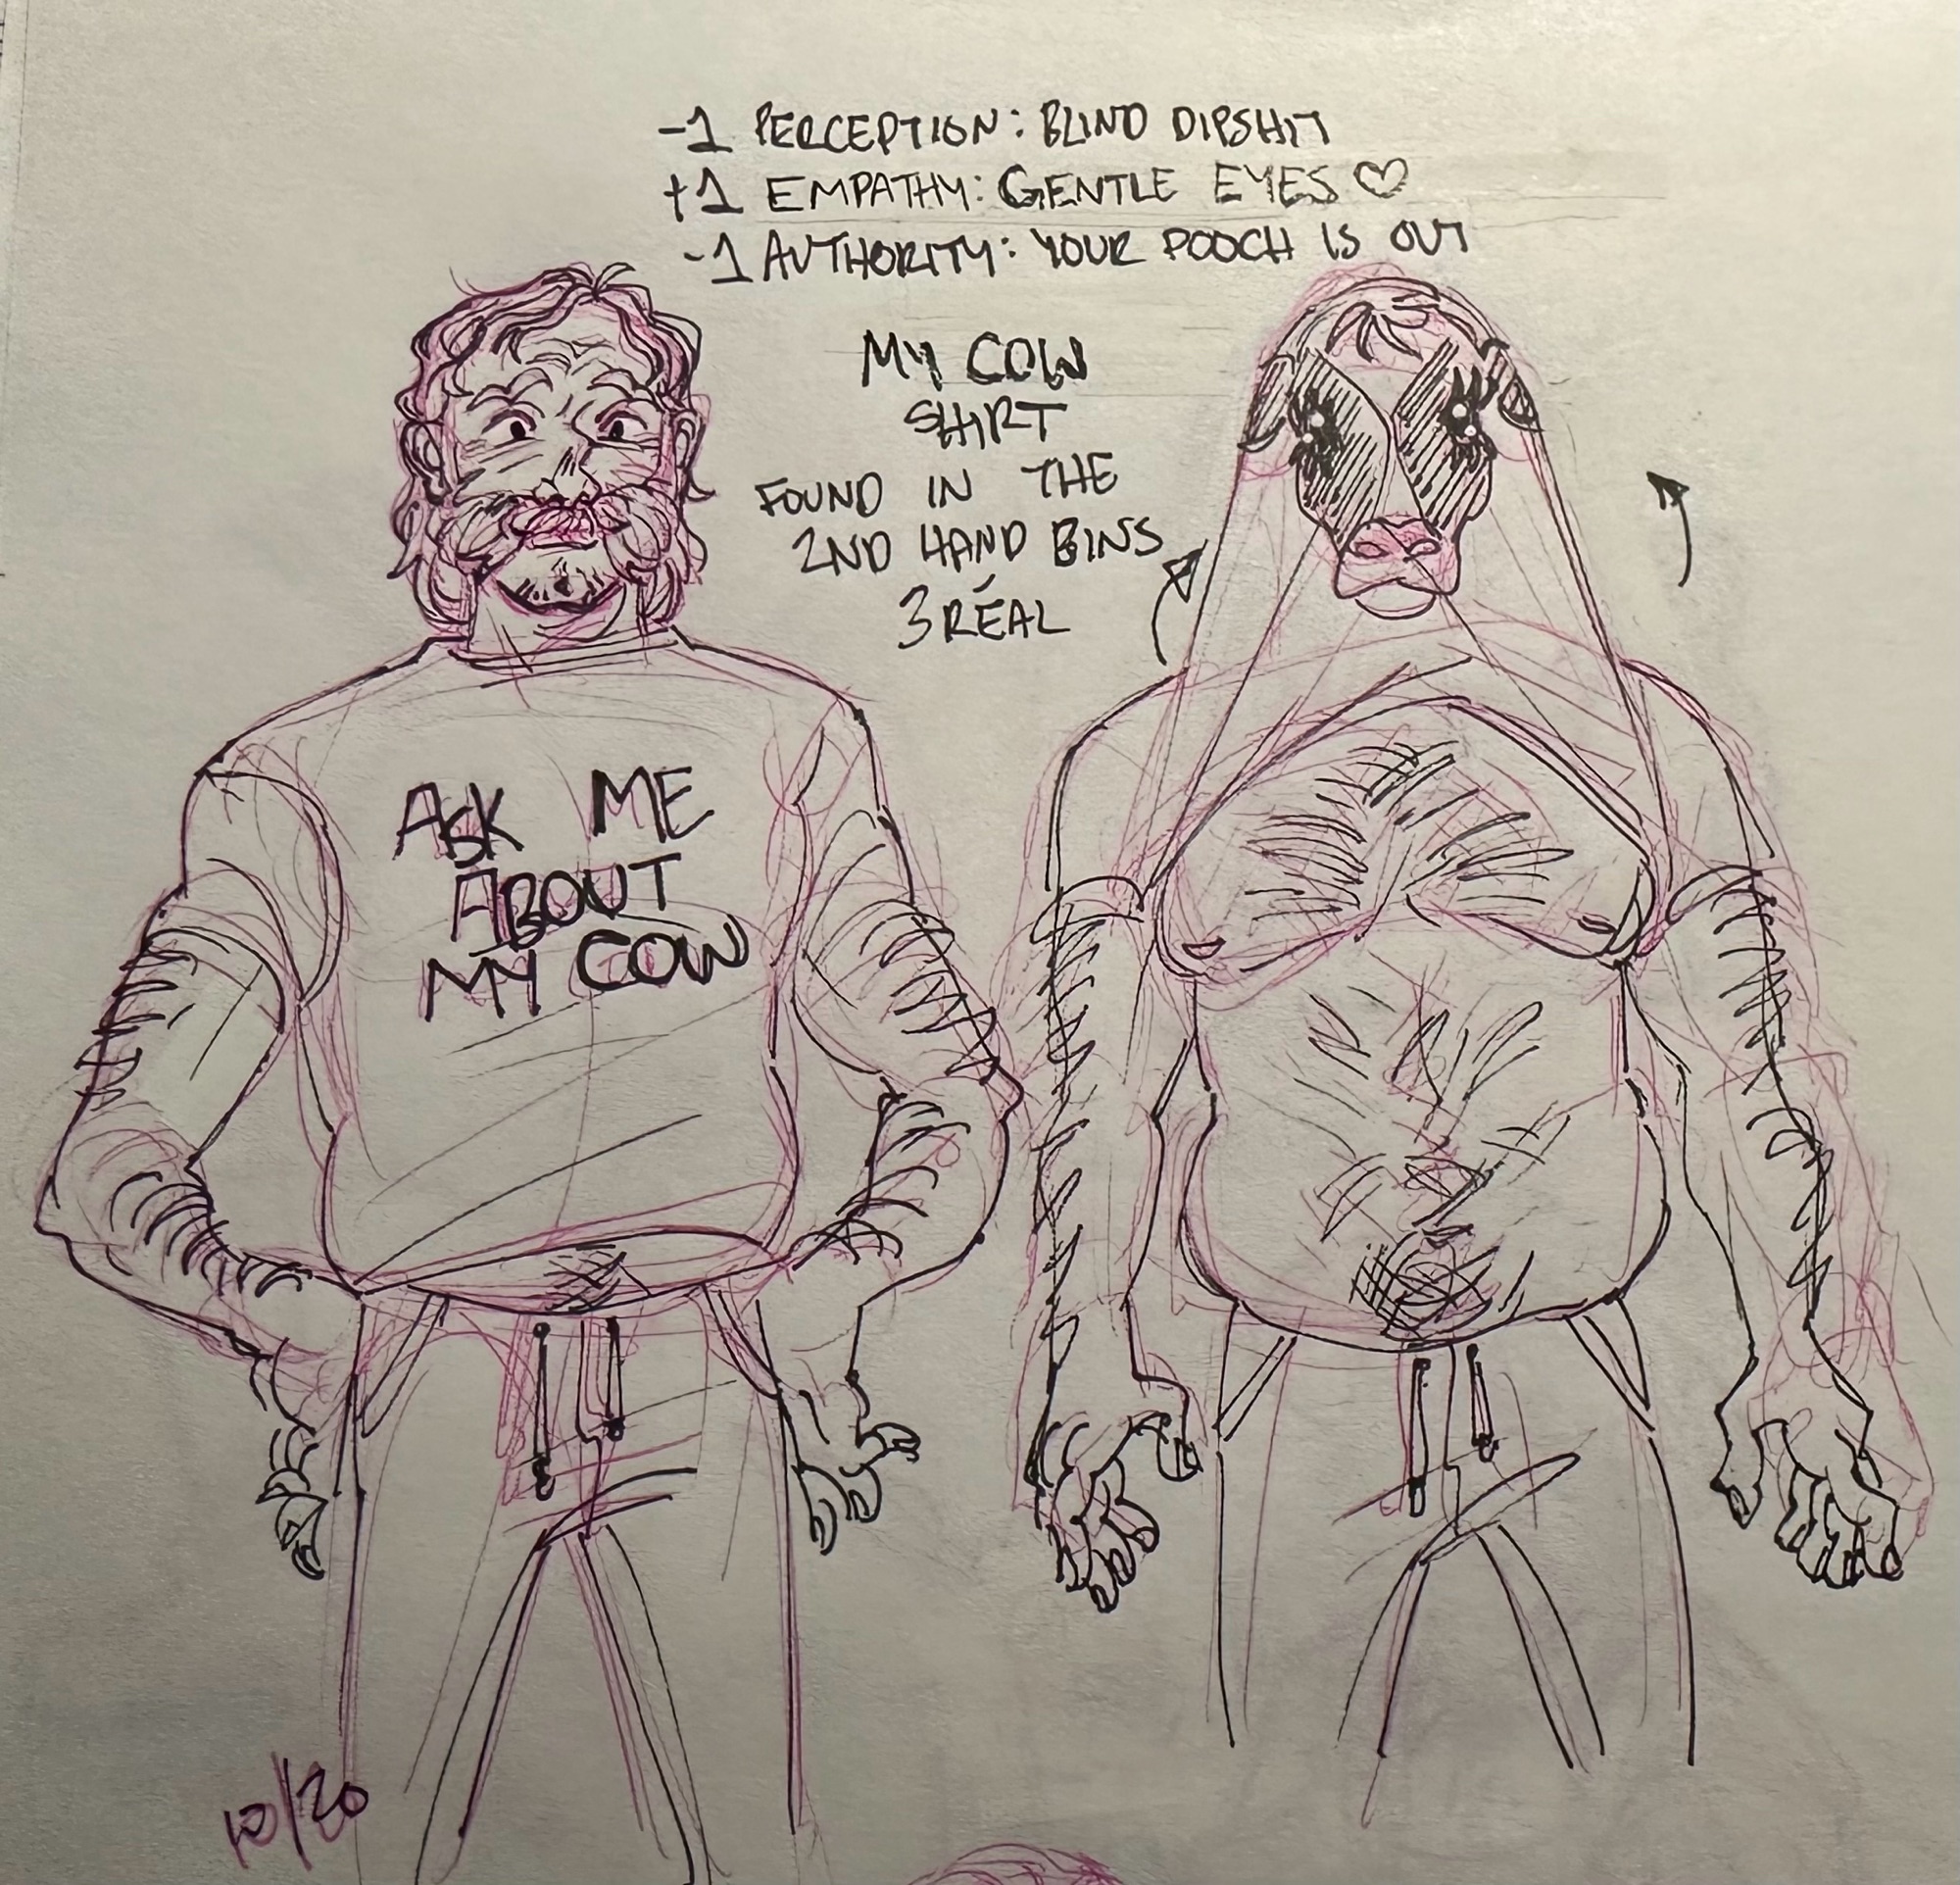 -1 PERCEPTION: BLIND DIPSHIT
+1 EMPATHY: GENTLE EYES ♡
-1 AUTHORITY: YOUR POOCH IS OUT
MY COW
SHIRT
FOUND IN THE
2ND HAND BINS
3 RÉAL
ASK ME
ABOUT
MY COW
10/20